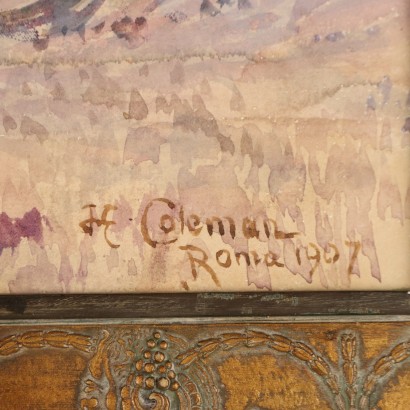 H. Coleman
Roma 1907